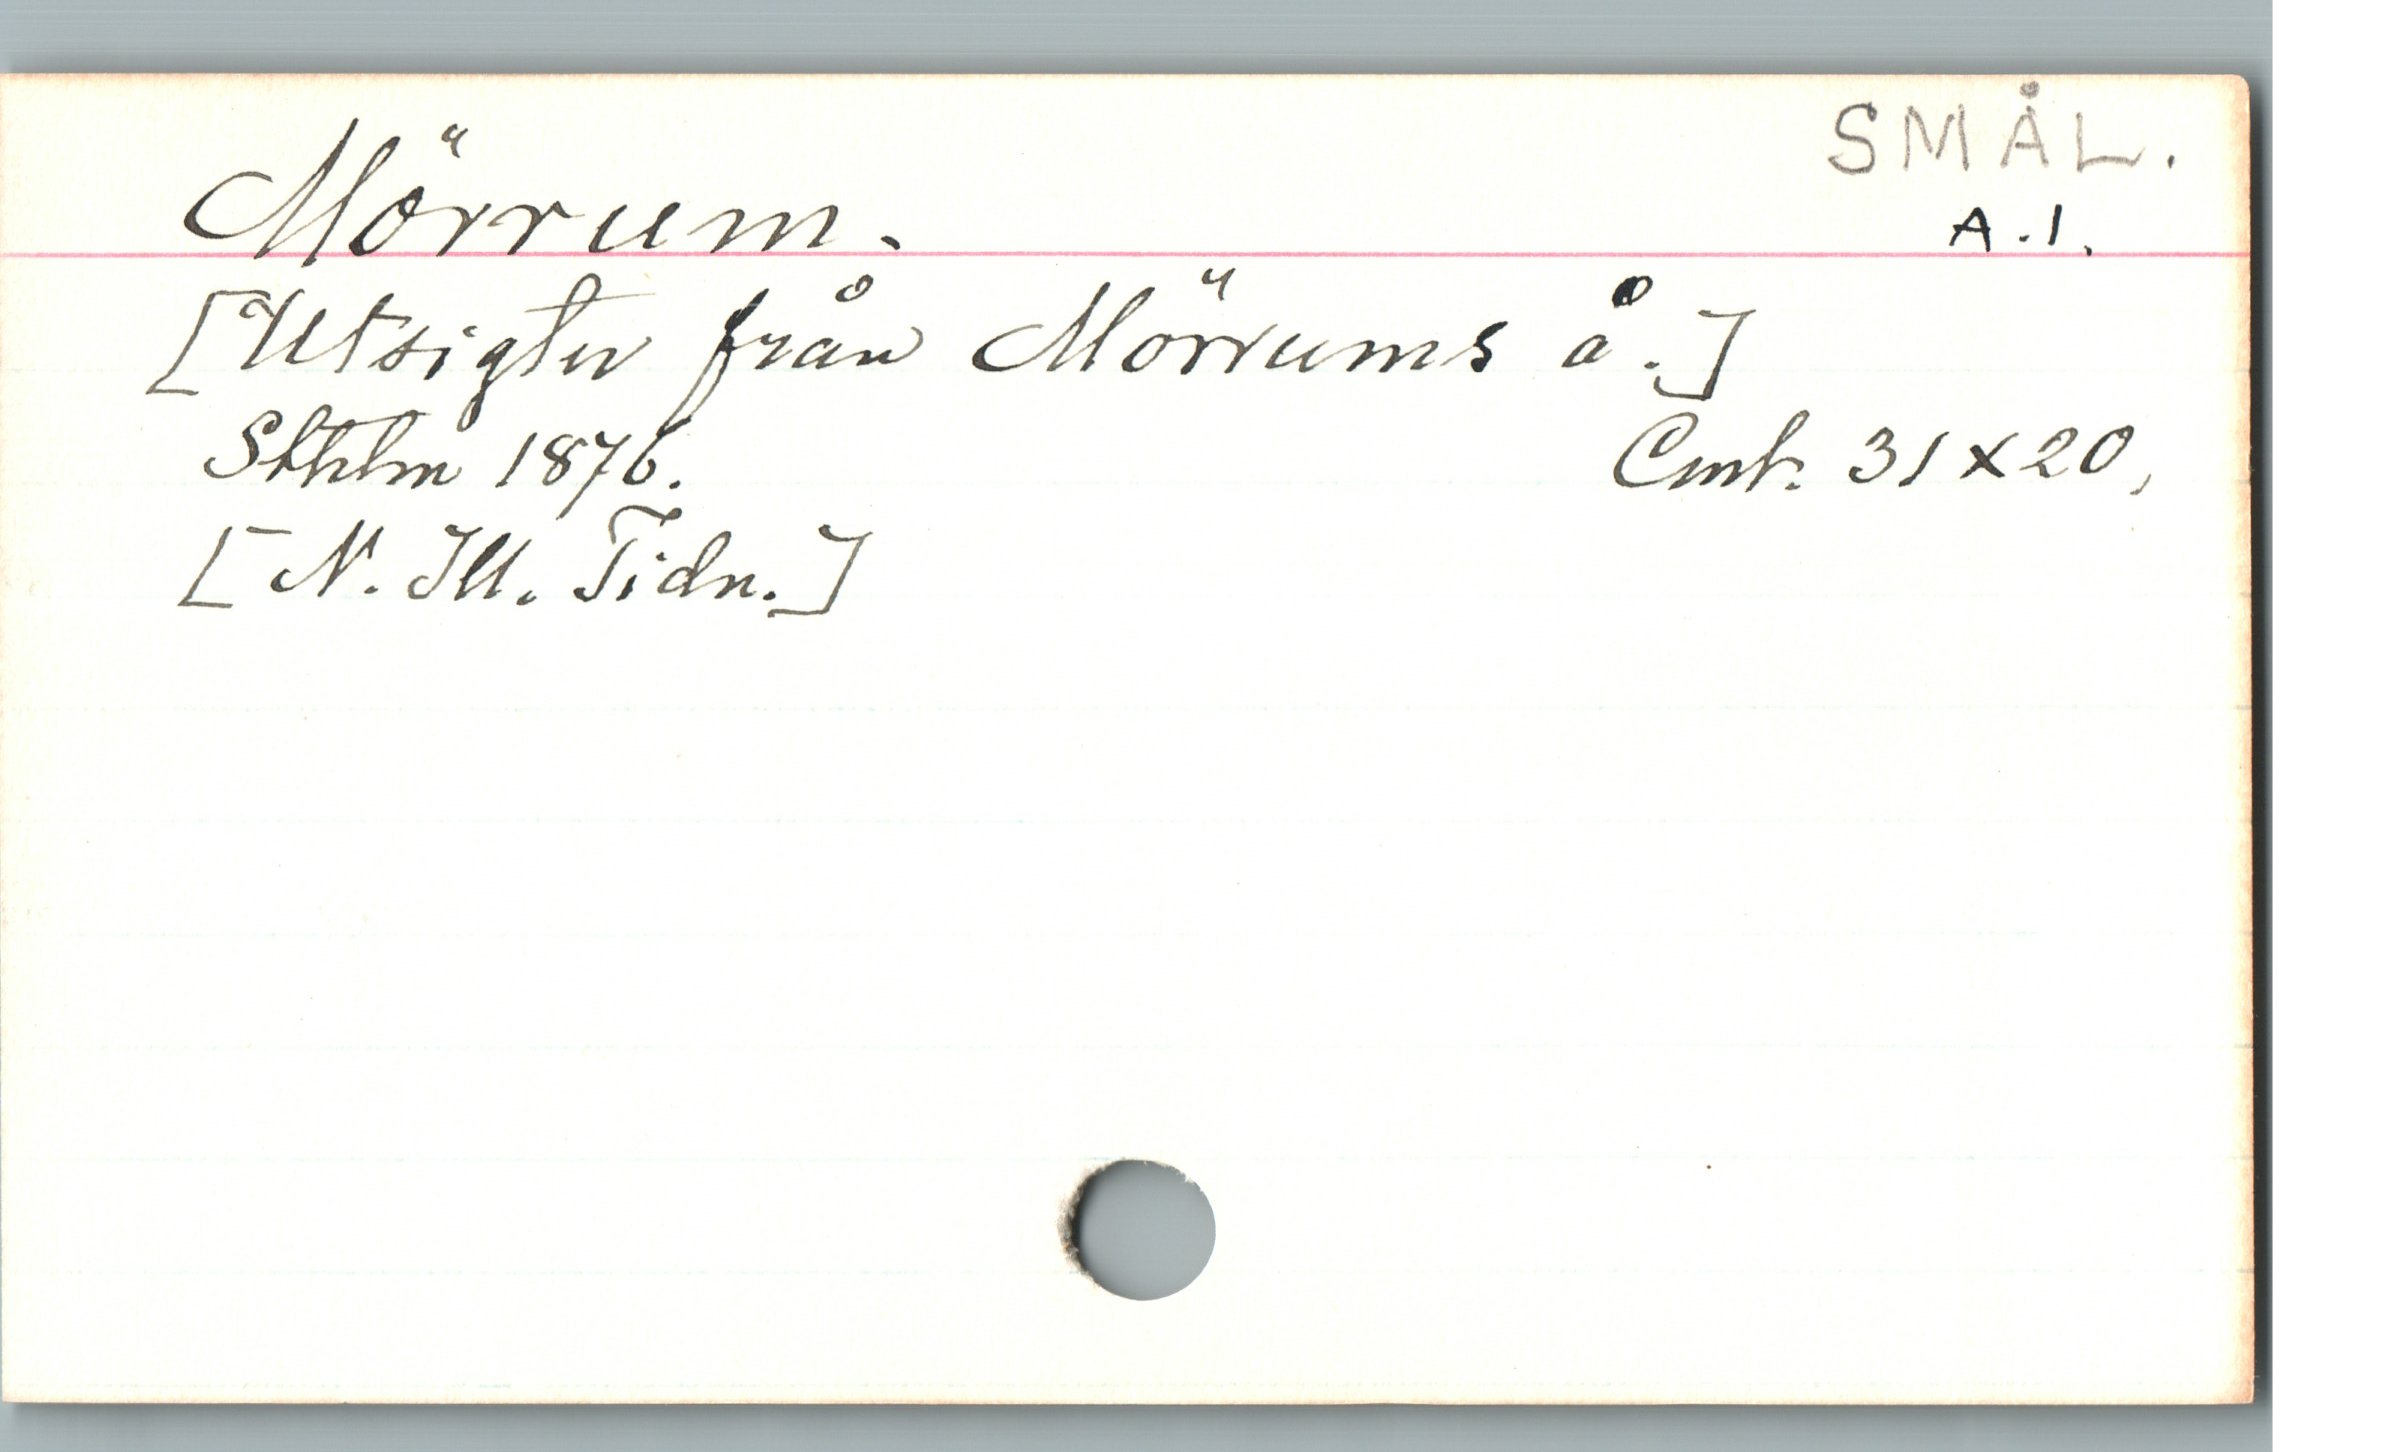 SMÅL.
Mörrum.
A.1.
[Utsigter från Mörrums å.]
Sthlm 1876. Cmt. 31 x 20.
[N. Ill. Tidn.]